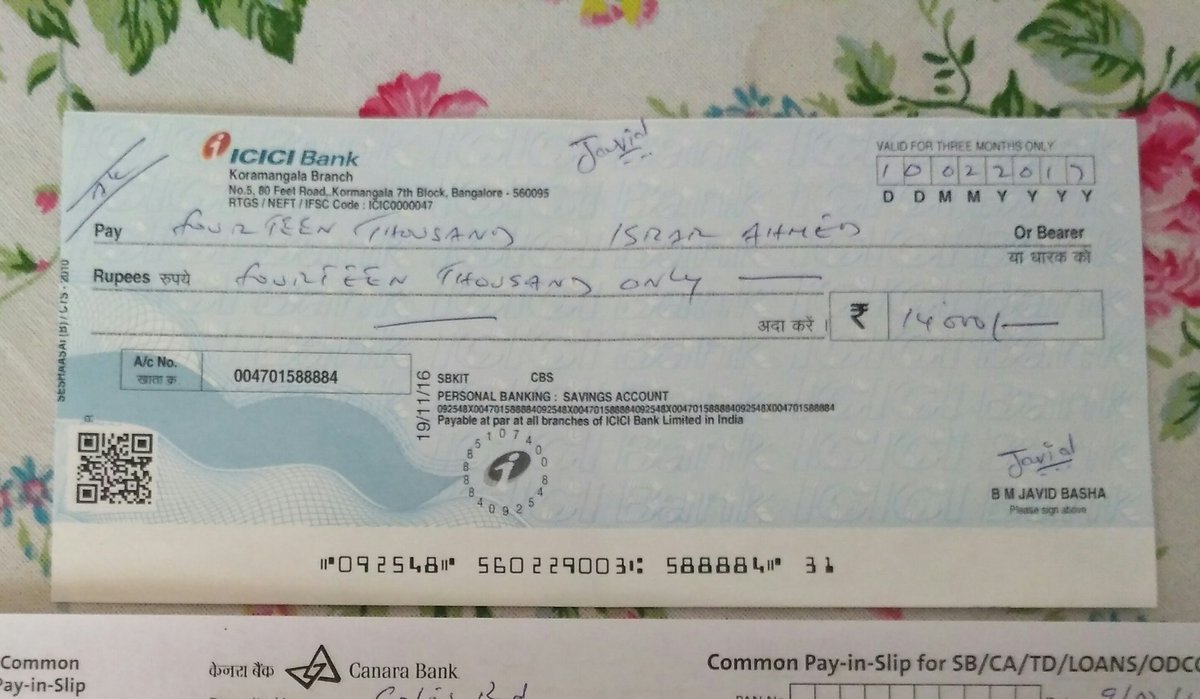 ICICI Bank
Koramangala Branch
No.5, 80 Feet Road, Kormangala 7th Block, Bangalore - 560095
RTGS / NEFT / IFSC Code : ICIC0000047
Javid
VALID FOR THREE MONTHS ONLY
10022017
D D M M Y Y Y Y
Pay FOURTEEN THOUSAND ISRAR AHMED Or Bearer
या धारक को
Rupees रुपये FOURTEEN THOUSAND ONLY
अदा करें । ₹ 14000/-
A/c No.
खाता क्र
004701588884
SESHAASAI (B) / CTS - 2010
19/11/16
SBKIT CBS
PERSONAL BANKING : SAVINGS ACCOUNT
092548X004701588884092548X004701588884092548X004701588884092548X004701588884
Payable at par at all branches of ICICI Bank Limited in India
Javid
B M JAVID BASHA
Please sign above
⑈092548⑈ 560229003⑆ 588884⑈ 31
Common
Pay-in-Slip
केनरा बैंक Canara Bank
Common Pay-in-Slip for SB/CA/TD/LOANS/ODCC